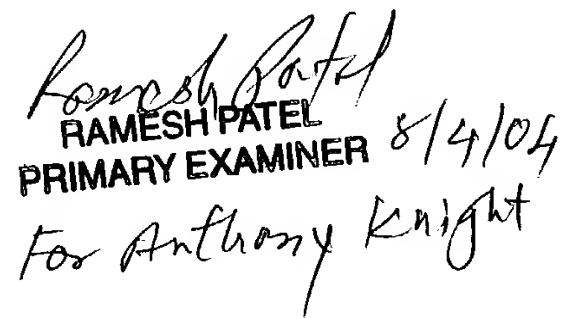 Ramesh Patel
RAMESH PATEL
PRIMARY EXAMINER 8/4/04
For Anthony Knight